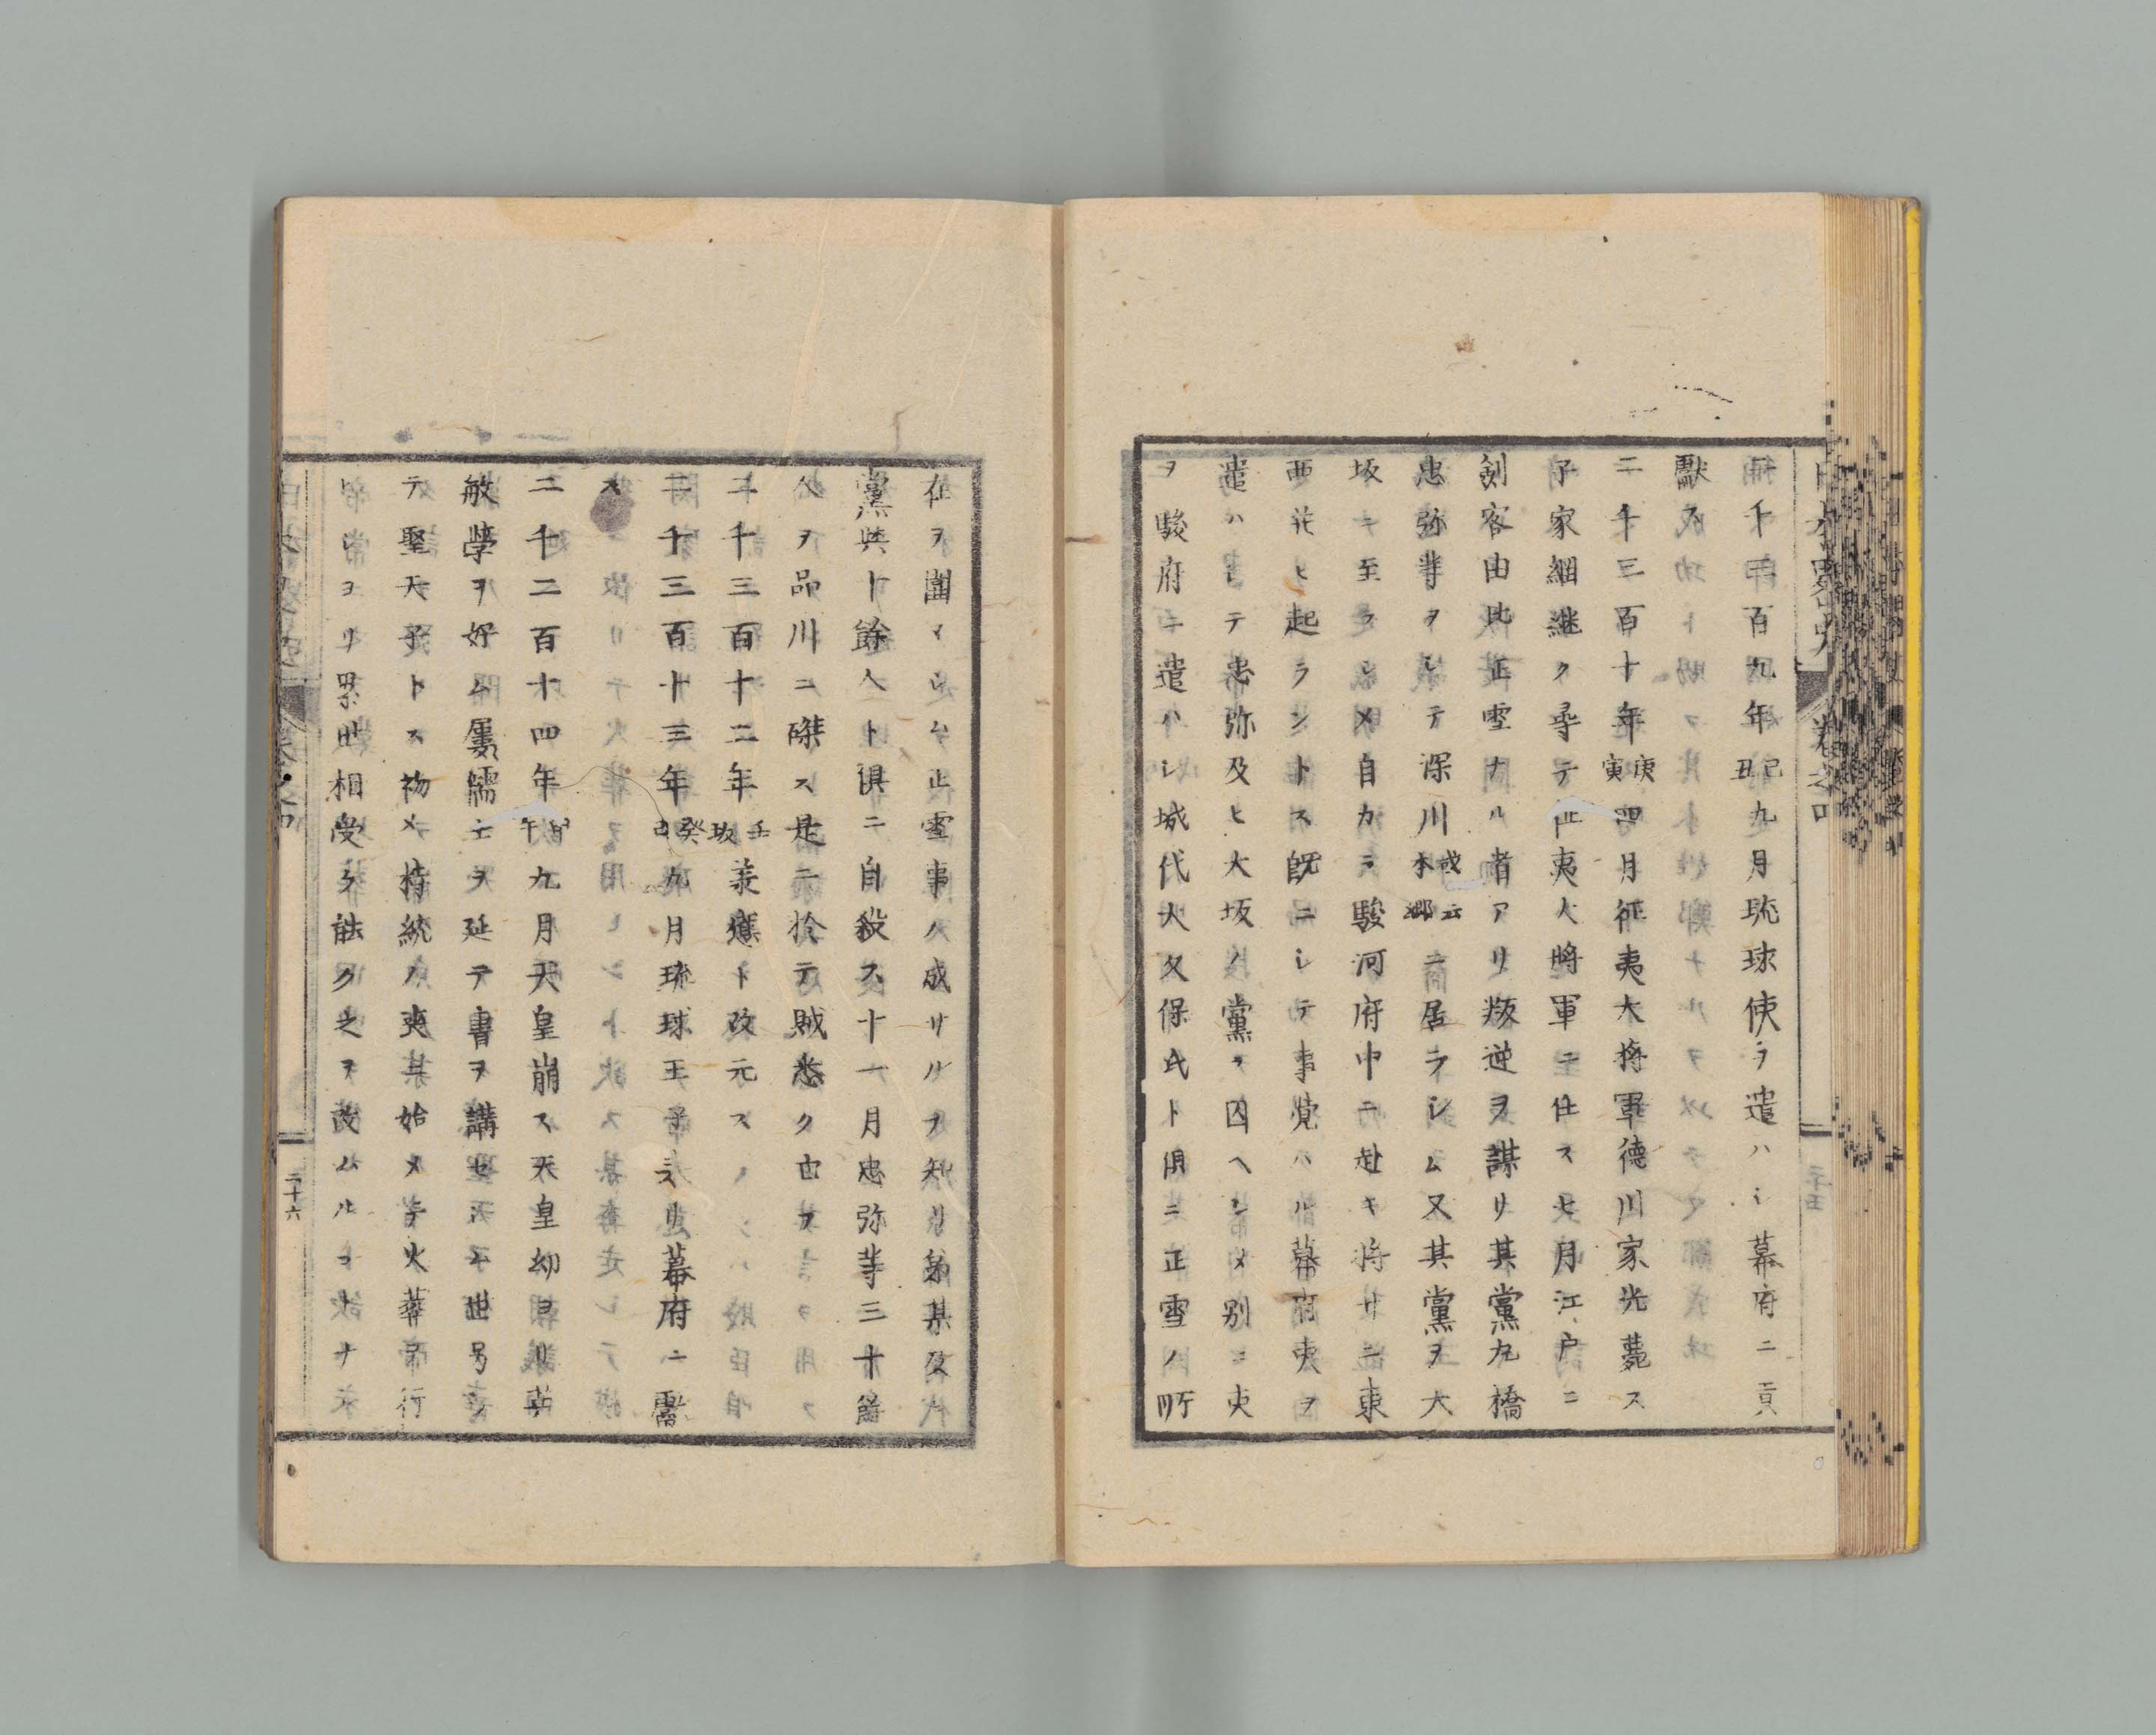 二千三百九年己丑九月琉球使ヲ遣ハシ幕府ニ貢
獻ス
二千三百十年庚寅四月征夷大将軍徳川家光薨ス
子家綱継ク尋テ征夷大将軍ニ任ス七月江戸ニ
剣客由比正雪ナル者アリ叛逆ヲ謀リ其黨丸橋
忠弥等ヲシテ深川或云本郷ニ居ラシム又其黨ヲ大
坂ニ至ラシメ自カラ駿河府中ニ赴キ将サニ東
西並ヒ起ラントス既ニシテ事覚ハル幕府吏ヲ
遣ハシテ忠弥及ヒ大坂ノ黨ヲ囚ヘシメ別ニ吏
ヲ駿府ニ遣ハシ城代大久保氏ト倶ニ正雪ノ所
在ヲ圍マシム正雪事ノ成サルヲ知リ弟某及ヒ
黨與十餘人ト倶ニ自殺ス十一月忠弥等三十餘
人ヲ品川ニ磔ス是ニ於テ賊悉ク亡フ
二千三百十二年壬辰義應ト改元ス
二千三百十三年癸巳九月琉球王子ヨリ幕府ニ獻
ス
二千二百十四年甲午九月天皇崩ス天皇幼ヨリ英
敏學ヲ好ム屢儒士ヲ延テ書ヲ講セシム世号
テ聖天子トス初メ持統ノ喪始メテ火葬ヲ行
ヒシヨリ累世相受ケ能ク之ヲ改ムルヿナ
日本畧史 巻之四
二十五
二十六